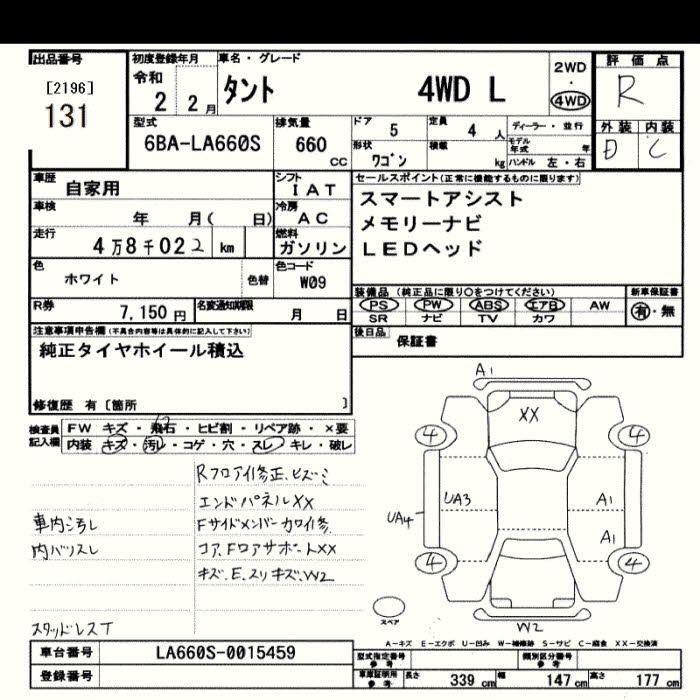 出品番号
[2196]
131
初度登録年月
令和
2 2月
車名・グレード
タント 4WD L
2WD
・
4WD
評価点
R
外装 内装
D C
型式
6BA-LA660S
排気量
660
cc
ドア
5
定員
4 人
形状
ワゴン
積載
kg
ディーラー・並行
モデル年式 年
ハンドル 左・右
車歴
自家用
シフト
IAT
車検
年 月( 日)
冷房
AC
走行
4万8千022 km
燃料
ガソリン
色
ホワイト
色替
色コード
W09
R券
7,150円
名変通知期限
月 日
セールスポイント(正常に機能するものに限ります)
スマートアシスト
メモリーナビ
LEDヘッド
装備品(純正品に限り○をつけてください)
PS PW ABS エアB AW
SR ナビ TV カワ
新車保証書
有・無
後日品
保証書
注意事項申告欄(不具合内容等は具体的に記入して下さい)
純正タイヤホイール積込
修復歴 有〔箇所 〕
検査員
記入欄
FW キズ・飛石・ヒビ割・リペア跡・×要
内装 キズ・汚レ・コゲ・穴・スレ・キレ・破レ
Rフロアイ修正.ヒズミ
エンドパネルXX
車内汚レ
Fサイドメンバーカワイ修.
内バリスレ
コア.FロアサポートXX
キズ.E.スリキズ.W2
スタッドレスT
A1
XX
4 4
UA3
A1
UA4
A1
4 4
スペア
W2
A-キズ E-エクボ U-凹み W-補修跡 S-サビ C-腐食 XX-交換済
車台番号
LA660S-0015459
登録番号
型式指定番号
参考
類別区分番号
参考
車庫証明用
参考
長さ 339 cm
幅 147 cm
高さ 177 cm